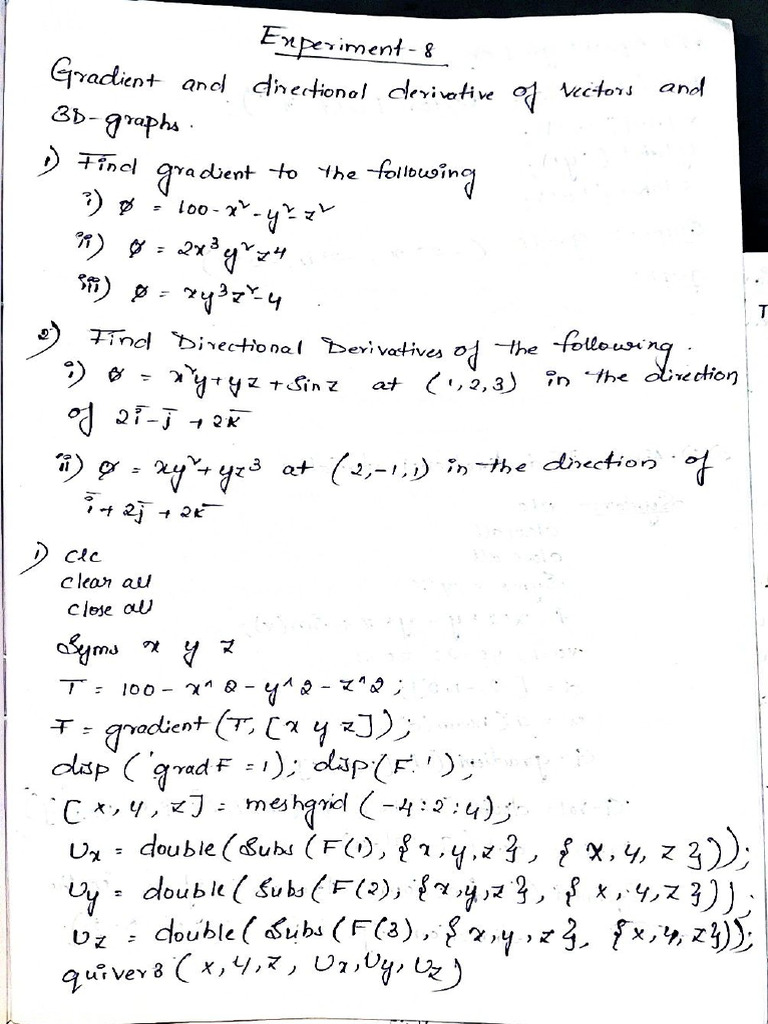 Experiment-8
Gradient and directional derivative of vectors and
3D-graphs.
1) Find gradient to the following
i) ø = 100-x²-y²-z²
ii) ø = 2x³y²z⁴
iii) ø = xy³z²-4
2) Find Directional Derivatives of the following.
i) ø = x²y+yz+sinz at (1,2,3) in the direction
of 2i̅-j̅+2k̅
ii) ø = xy²+yz³ at (2,-1,1) in the direction of
i̅+2j̅+2k̅
1) clc
clear all
close all
Syms x y z
T = 100-x^2-y^2-z^2;
F = gradient(T,[x y z]);
disp('grad F =1); disp(F.');
[X,Y,Z] = meshgrid(-4:2:4);
Ux = double(Subs(F(1),{x,y,z},{X,Y,Z}));
Uy = double(Subs(F(2),{x,y,z},{X,Y,Z}));
Uz = double(Subs(F(3),{x,y,z},{X,Y,Z}));
quiver3(X,Y,Z,Ux,Uy,Uz)
T